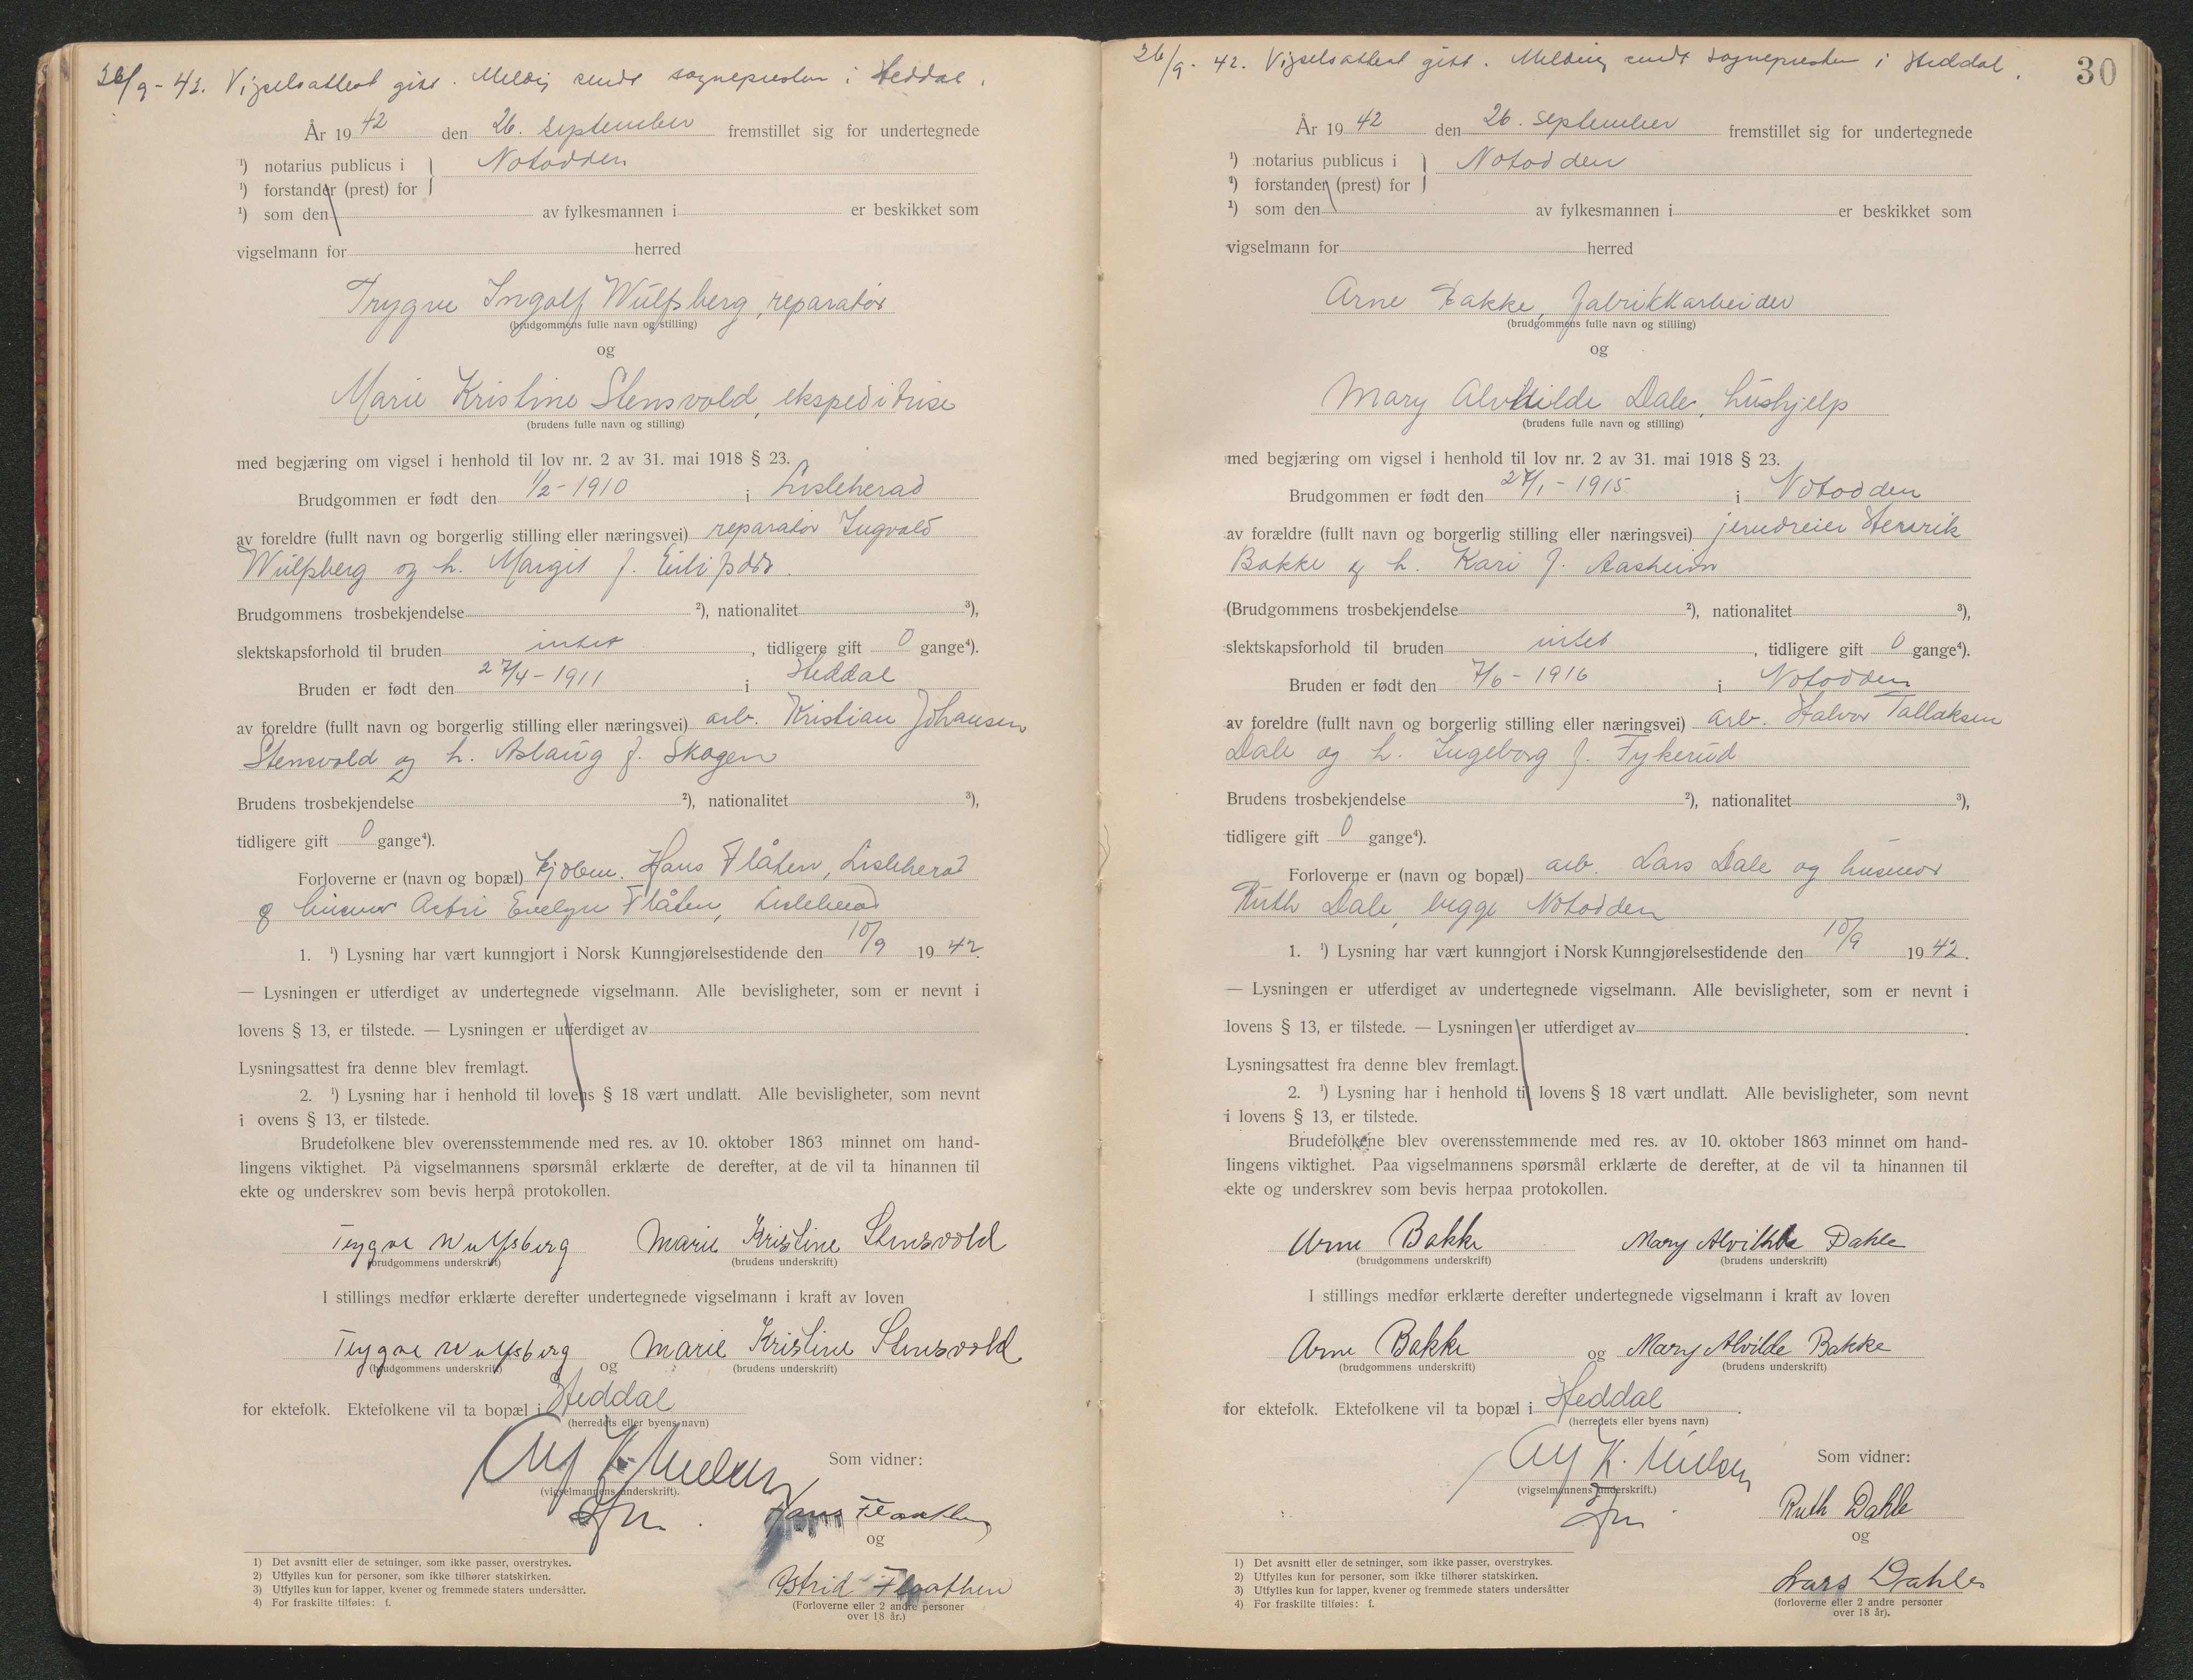 26/9 - 42. Vigselsattest gitt. Melding sendt sognepresten i Heddal.
År 19 42 den 26. september fremstillet sig for undertegnede
¹) notarius publicus i } Notodden
¹) forstander (prest) for
¹) som den av fylkesmannen i er beskikket som
vigselmann for herred
Trygve Ingolf Wulfsberg, reparatør
(brudgommens fulle navn og stilling)
og
Marie Kristine Stensvold, ekspeditrise
(brudens fulle navn og stilling)
med begjæring om vigsel i henhold til lov nr. 2 av 31. mai 1918 § 23.
Brudgommen er født den 1/2 - 1910 i Lisleherad
av foreldre (fullt navn og borgerlig stilling eller næringsvei) reparatør Ingvald
Wulfsberg og h. Margit f.
Brudgommens trosbekjendelse ²), nationalitet ³),
slektskapsforhold til bruden intet, tidligere gift 0 gange⁴).
Bruden er født den 27/4 - 1911 i Heddal
av foreldre (fullt navn og borgerlig stilling eller næringsvei) arb. Kristian Johansen
Stensvold og h. Aslaug f. Skogen
Brudens trosbekjendelse ²), nationalitet ³),
tidligere gift 0 gange⁴).
Forloverne er (navn og bopæl) Hans Flåten, Lisleherad
og husmor Evelyn Flåten, Lisleherad
1. ¹) Lysning har vært kunngjort i Norsk Kunngjørelsestidende den 10/9 19 42.
— Lysningen er utferdiget av undertegnede vigselmann. Alle bevisligheter, som er nevnt i
lovens § 13, er tilstede. — Lysningen er utferdiget av
Lysningsattest fra denne blev fremlagt.
2. ¹) Lysning har i henhold til lovens § 18 vært undlatt. Alle bevisligheter, som nevnt
i ovens § 13, er tilstede.
Brudefolkene blev overensstemmende med res. av 10. oktober 1863 minnet om hand-
lingens viktighet. På vigselmannens spørsmål erklærte de derefter, at de vil ta hinannen til
ekte og underskrev som bevis herpå protokollen.
Trygve Wulfsberg Marie Kristine Stensvold
(brudgommens underskrift) (brudens underskrift)
I stillings medfør erklærte derefter undertegnede vigselmann i kraft av loven
Trygve Wulfsberg og Marie Kristine Stensvold
(brudgommens underskrift) (brudens underskrift)
for ektefolk. Ektefolkene vil ta bopæl i Heddal
(herredets eller byens navn)
Alf K. Nielsen Som vidner:
(vigselmannens underskrift).
Hans Flaathen
og
Astrid Flaathen
(Forloverne eller 2 andre personer
over 18 år.)
1) Det avsnitt eller de setninger, som ikke passer, overstrykes.
2) Utfylles kun for personer, som ikke tilhører statskirken.
3) Utfylles kun for lapper, kvener og fremmede staters undersåtter.
4) For fraskilte tilføies: f.
26/9 - 42. Vigselsattest gitt. Melding sendt sognepresten i Heddal.
30
År 19 42 den 26. september fremstillet sig for undertegnede
¹) notarius publicus i } Notodden
¹) forstander (prest) for
¹) som den av fylkesmannen i er beskikket som
vigselmann for herred
Arne Bakke, fabrikkarbeider
(brudgommens fulle navn og stilling)
og
Mary Alvhilde Dale, hushjelp
(brudens fulle navn og stilling)
med begjæring om vigsel i henhold til lov nr. 2 av 31. mai 1918 § 23.
Brudgommen er født den 27/1 - 1915 i Notodden
av forældre (fullt navn og borgerlig stilling eller næringsvei) jerndreier Henrik
Bakke og h. Kari f. Aasheim
(Brudgommens trosbekjendelse ²), nationalitet ³),
slektskapsforhold til bruden intet, tidligere gift 0 gange⁴).
Bruden er født den 7/6 - 1916 i Notodden
av foreldre (fullt navn og borgerlig stilling eller næringsvei) arb. Halvor Tallaksen
Dale og h. Ingeborg f. Tykerud
Brudens trosbekjendelse ²), nationalitet ³),
tidligere gift 0 gange⁴).
Forloverne er (navn og bopæl) arb. Lars Dale og husmor
Ruth Dale, begge Notodden
1. ¹) Lysning har vært kunngjort i Norsk Kunngjørelsestidende den 10/9 19 42.
— Lysningen er utferdiget av undertegnede vigselmann. Alle bevisligheter, som er nevnt i
lovens § 13, er tilstede. — Lysningen er utferdiget av .
Lysningsattest fra denne blev fremlagt.
2. ¹) Lysning har i henhold til lovens § 18 vært undlatt. Alle bevisligheter, som nevnt
i lovens § 13, er tilstede.
Brudefolkene blev overensstemmende med res. av 10. oktober 1863 minnet om hand-
lingens viktighet. Paa vigselmannens spørsmål erklærte de derefter, at de vil ta hinannen til
ekte og underskrev som bevis herpaa protokollen.
Arne Bakke Mary Alvilde Dahle
(brudgommens underskrift) (brudens underskrift)
I stillings medfør erklærte derefter undertegnede vigselmann i kraft av loven
Arne Bakke og Mary Alvilde Bakke
(brudgommens underskrift) (brudens underskrift)
for ektefolk. Ektefolkene vil ta bopæl i Heddal.
(herredets eller byens navn)
Alf K. Nielsen Som vidner:
(vigselmannens underskrift.)
Ruth Dahle
og
Lars Dahle
(forloverne eller 2 andre personer
over 18 år).
1) Det avsnitt eller de setninger, som ikke passer, overstrykes.
2) Utfylles kun for personer, som ikke tilhører statskirken.
3) Utfylles kun for lapper, kvener og fremmede staters undersåtter
4) For fraskilte tilføies: f.